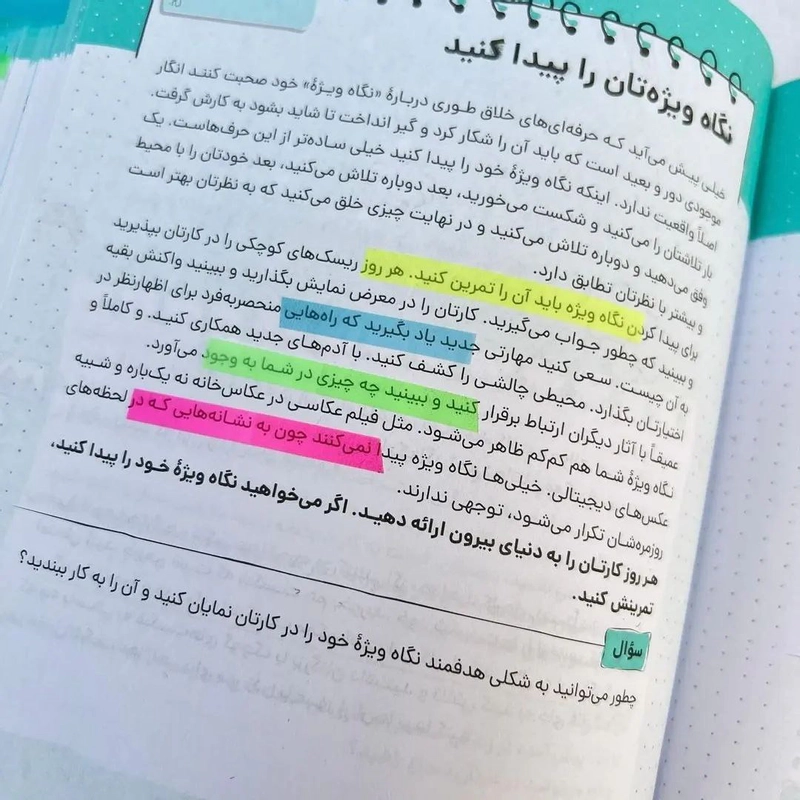 نگاه ویژه‌تان را پیدا کنید
خیلی پیش می‌آید که حرفه‌ای‌های خلاق طوری دربارهٔ «نگاه ویژهٔ» خود صحبت کنند انگار
موجودی دور و بعید است که باید آن را شکار کرد و گیر انداخت تا شاید بشود به کارش گرفت.
اصلاً واقعیت ندارد. اینکه نگاه ویژهٔ خود را پیدا کنید خیلی ساده‌تر از این حرف‌هاست. یک
بار تلاشتان را می‌کنید و شکست می‌خورید، بعد دوباره تلاش می‌کنید، بعد خودتان را با محیط
وفق می‌دهید و دوباره تلاش می‌کنید و در نهایت چیزی خلق می‌کنید که به نظرتان بهتر است
و بیشتر با نظرتان تطابق دارد.
برای پیدا کردن نگاه ویژه باید آن را تمرین کنید. هر روز ریسک‌های کوچکی را در کارتان بپذیرید
و ببینید که چطور جواب می‌گیرید. کارتان را در معرض نمایش بگذارید و ببینید واکنش بقیه
به آن چیست. سعی کنید مهارتی جدید یاد بگیرید که راه‌هایی منحصربه‌فرد برای اظهارنظر در
اختیارتان بگذارد. محیطی چالشی را کشف کنید. با آدم‌های جدید همکاری کنید. و کاملاً و
عمیقاً با آثار دیگران ارتباط برقرار کنید و ببینید چه چیزی در شما به وجود می‌آورد.
نگاه ویژهٔ شما هم کم‌کم ظاهر می‌شود. مثل فیلم عکاسی در عکاس‌خانه نه یک‌باره و شبیه
عکس‌های دیجیتالی. خیلی‌ها نگاه ویژه پیدا نمی‌کنند چون به نشانه‌هایی که در لحظه‌های
روزمره‌شان تکرار می‌شود، توجهی ندارند.
هر روز کارتان را به دنیای بیرون ارائه دهید. اگر می‌خواهید نگاه ویژهٔ خود را پیدا کنید،
تمرینش کنید.
سؤال
چطور می‌توانید به شکلی هدفمند نگاه ویژهٔ خود را در کارتان نمایان کنید و آن را به کار ببندید؟